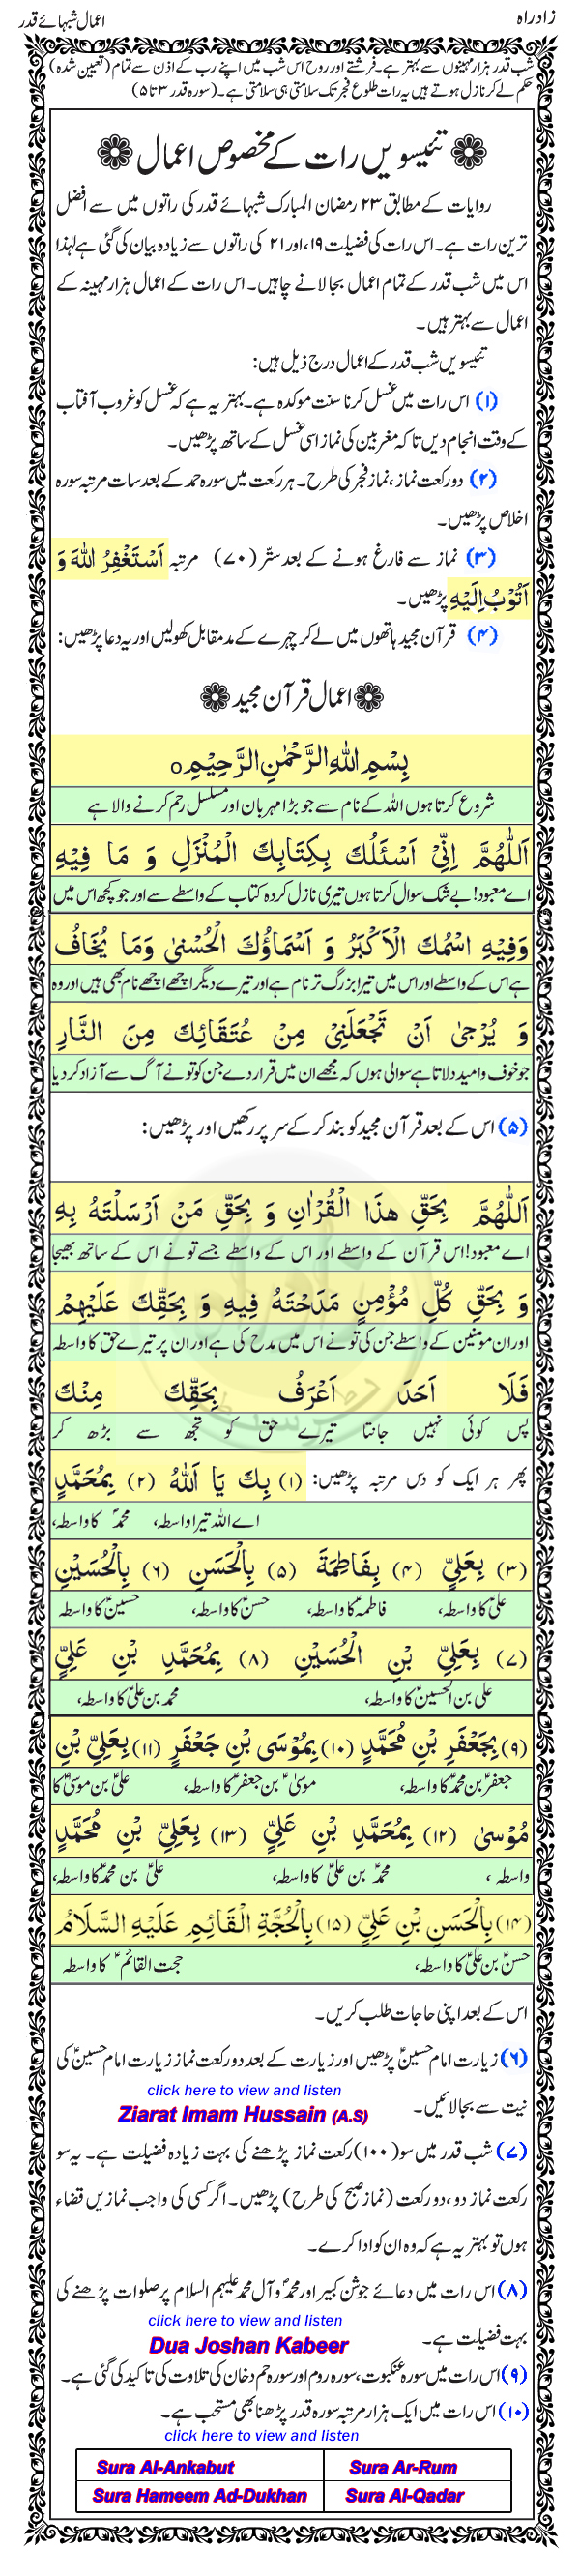 زادراہ
اعمال شبہائے قدر
شب قدر ہزار مہینوں سے بہتر ہے۔ فرشتے اور روح اس شب میں اپنے رب کے اذن سے تمام (تعیین شدہ)
حکم لے کر نازل ہوتے ہیں یہ رات طلوع فجر تک سلامتی ہی سلامتی ہے۔ (سورہ قدر ۳ تا ۵)
تئیسویں رات کے مخصوص اعمال
روایات کے مطابق ۲۳ رمضان المبارک شبہائے قدر کی راتوں میں سے افضل
ترین رات ہے۔ اس رات کی فضیلت ۱۹، اور ۲۱ کی راتوں سے زیادہ بیان کی گئی ہے لہٰذا
اس میں شب قدر کے تمام اعمال بجا لانے چاہیں۔ اس رات کے اعمال ہزار مہینہ کے
اعمال سے بہتر ہیں۔
تئیسویں شب قدر کے اعمال درج ذیل ہیں:
(۱) اس رات میں غسل کرنا سنت موکدہ ہے۔ بہتر یہ ہے کہ غسل کو غروب آفتاب
کے وقت انجام دیں تاکہ مغربین کی نماز اسی غسل کے ساتھ پڑھیں۔
(۲) دو رکعت نماز، نماز فجر کی طرح۔ ہر رکعت میں سورہ حمد کے بعد سات مرتبہ سورہ
اخلاص پڑھیں۔
(۳) نماز سے فارغ ہونے کے بعد ستّر (۷۰) مرتبہ اَسْتَغْفِرُ اللّٰهَ وَ
اَتُوْبُ اِلَيْهِ پڑھیں۔
(۴) قرآن مجید ہاتھوں میں لے کر چہرے کے مدمقابل کھولیں اور یہ دعا پڑھیں:
اعمال قرآن مجید
بِسْمِ اللّٰهِ الرَّحْمٰنِ الرَّحِيْمِ ۝
شروع کرتا ہوں اللہ کے نام سے جو بڑا مہربان اور مسلسل رحم کرنے والا ہے
اَللّٰهُمَّ اِنِّىْ اَسْئَلُكَ بِكِتَابِكَ الْمُنْزَلِ وَ مَا فِيْهِ
اے معبود! بے شک سوال کرتا ہوں تیری نازل کردہ کتاب کے واسطے سے اور جو کچھ اس میں
وَفِيْهِ اسْمُكَ الْاَكْبَرُ وَ اَسْمَاؤُكَ الْحُسْنىٰ وَمَا يُخَافُ
ہے اس کے واسطے اور اس میں تیرا بزرگ تر نام ہے اور تیرے دیگر اچھے اچھے نام بھی ہیں اور وہ
وَ يُرْجىٰ اَنْ تَجْعَلَنِىْ مِنْ عُتَقَائِكَ مِنَ النَّارِ
جو خوف و امید دلاتا ہے سوالی ہوں کہ مجھے ان میں قرار دے جن کو تو نے آگ سے آزاد کر دیا
(۵) اس کے بعد قرآن مجید کو بند کر کے سر پر رکھیں اور پڑھیں:
اَللّٰهُمَّ بِحَقِّ هٰذَا الْقُرْاٰنِ وَ بِحَقِّ مَنْ اَرْسَلْتَهُ بِهِ
اے معبود! اس قرآن کے واسطے اور اس کے واسطے جسے تو نے اس کے ساتھ بھیجا
وَ بِحَقِّ كُلِّ مُؤْمِنٍ مَدَحْتَهُ فِيهِ وَ بِحَقِّكَ عَلَيْهِمْ
اور ان مومنین کے واسطے جن کی تو نے اس میں مدح کی ہے اور ان پر تیرے حق کا واسطہ
فَلَا اَحَدَ اَعْرَفُ بِحَقِّكَ مِنْكَ
پس کوئی نہیں جانتا تیرے حق کو تجھ سے بڑھ کر
پھر ہر ایک کو دس مرتبہ پڑھیں: (۱) بِكَ يَا اَللّٰهُ (۲) بِمُحَمَّدٍ
اے اللہ تیرا واسطہ، محمدؐ کا واسطہ،
(۳) بِعَلِىٍّ (۴) بِفَاطِمَةَ (۵) بِالْحَسَنِ (۶) بِالْحُسَيْنِ
علیؑ کا واسطہ، فاطمہؑ کا واسطہ، حسنؑ کا واسطہ، حسینؑ کا واسطہ
(۷) بِعَلِىِّ بْنِ الْحُسَيْنِ (۸) بِمُحَمَّدِ بْنِ عَلِىٍّ
علی بن الحسینؑ کا واسطہ، محمد بن علیؑ کا واسطہ،
(۹) بِجَعْفَرِ بْنِ مُحَمَّدٍ (۱۰) بِمُوْسَى بْنِ جَعْفَرٍ (۱۱) بِعَلِىِّ بْنِ
جعفر بن محمدؑ کا واسطہ، موسیٰؑ بن جعفرؑ کا واسطہ، علیؑ بن موسیٰؑ کا
مُوْسىٰ (۱۲) بِمُحَمَّدِ بْنِ عَلِىٍّ (۱۳) بِعَلِىِّ بْنِ مُحَمَّدٍ
واسطہ، محمدؑ بن علیؑ کا واسطہ، علیؑ بن محمدؑ کا واسطہ،
(۱۴) بِالْحَسَنِ بْنِ عَلِىٍّ (۱۵) بِالْحُجَّةِ الْقَائِمِ عَلَيْهِ السَّلَامُ
حسنؑ بن علیؑ کا واسطہ، حجت القائمؑ کا واسطہ
اس کے بعد اپنی حاجات طلب کریں۔
(۶) زیارت امام حسینؑ پڑھیں اور زیارت کے بعد دو رکعت نماز زیارت امام حسینؑ کی
نیت سے بجا لائیں۔
click here to view and listen
Ziarat Imam Hussain (A.S)
(۷) شب قدر میں سو (۱۰۰) رکعت نماز پڑھنے کی بہت زیادہ فضیلت ہے۔ یہ سو
رکعت نماز دو، دو رکعت (نماز صبح کی طرح) پڑھیں۔ اگر کسی کی واجب نمازیں قضاء
ہوں تو بہتر یہ ہے کہ وہ ان کو ادا کرے۔
(۸) اس رات میں دعائے جوشن کبیر اور محمدؐ و آل محمد علیہم السلام پر صلوات پڑھنے کی
بہت فضیلت ہے۔
click here to view and listen
Dua Joshan Kabeer
(۹) اس رات میں سورہ عنکبوت، سورہ روم اور سورہ حم دخان کی تلاوت کی تاکید کی گئی ہے۔
(۱۰) اس رات میں ایک ہزار مرتبہ سورہ قدر پڑھنا بھی مستحب ہے۔
click here to view and listen
Sura Al-Ankabut
Sura Ar-Rum
Sura Hameem Ad-Dukhan
Sura Al-Qadar